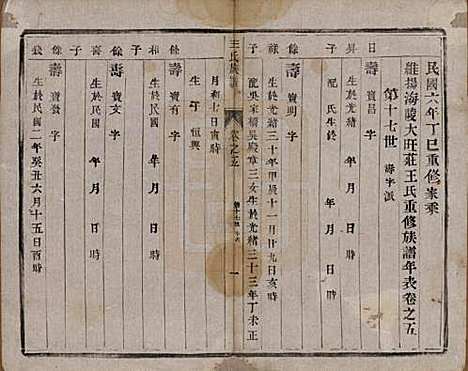 民國六年丁巳重修家乘
維揚海陵大旺莊王氏重修族譜年表卷之五
第十七世 壽字派
日昇子
壽昌 字
生於光緒 年 月 日時
配 氏生於 年 月 日時
祿子
壽明 字
生於光緒三十年甲辰十一月廿九日亥時
配吳宋橋吳殿章三女生於光緒三十三年丁未正
王氏族譜 卷之五 一
月初七日 時
生子 恒興
餘和子
壽有 字
生於民國 年 月 日時
餘壽子
壽文 字
生於民國 年 月 日時
餘錢
壽發 字
生於民國二年癸丑六月十五日酉時